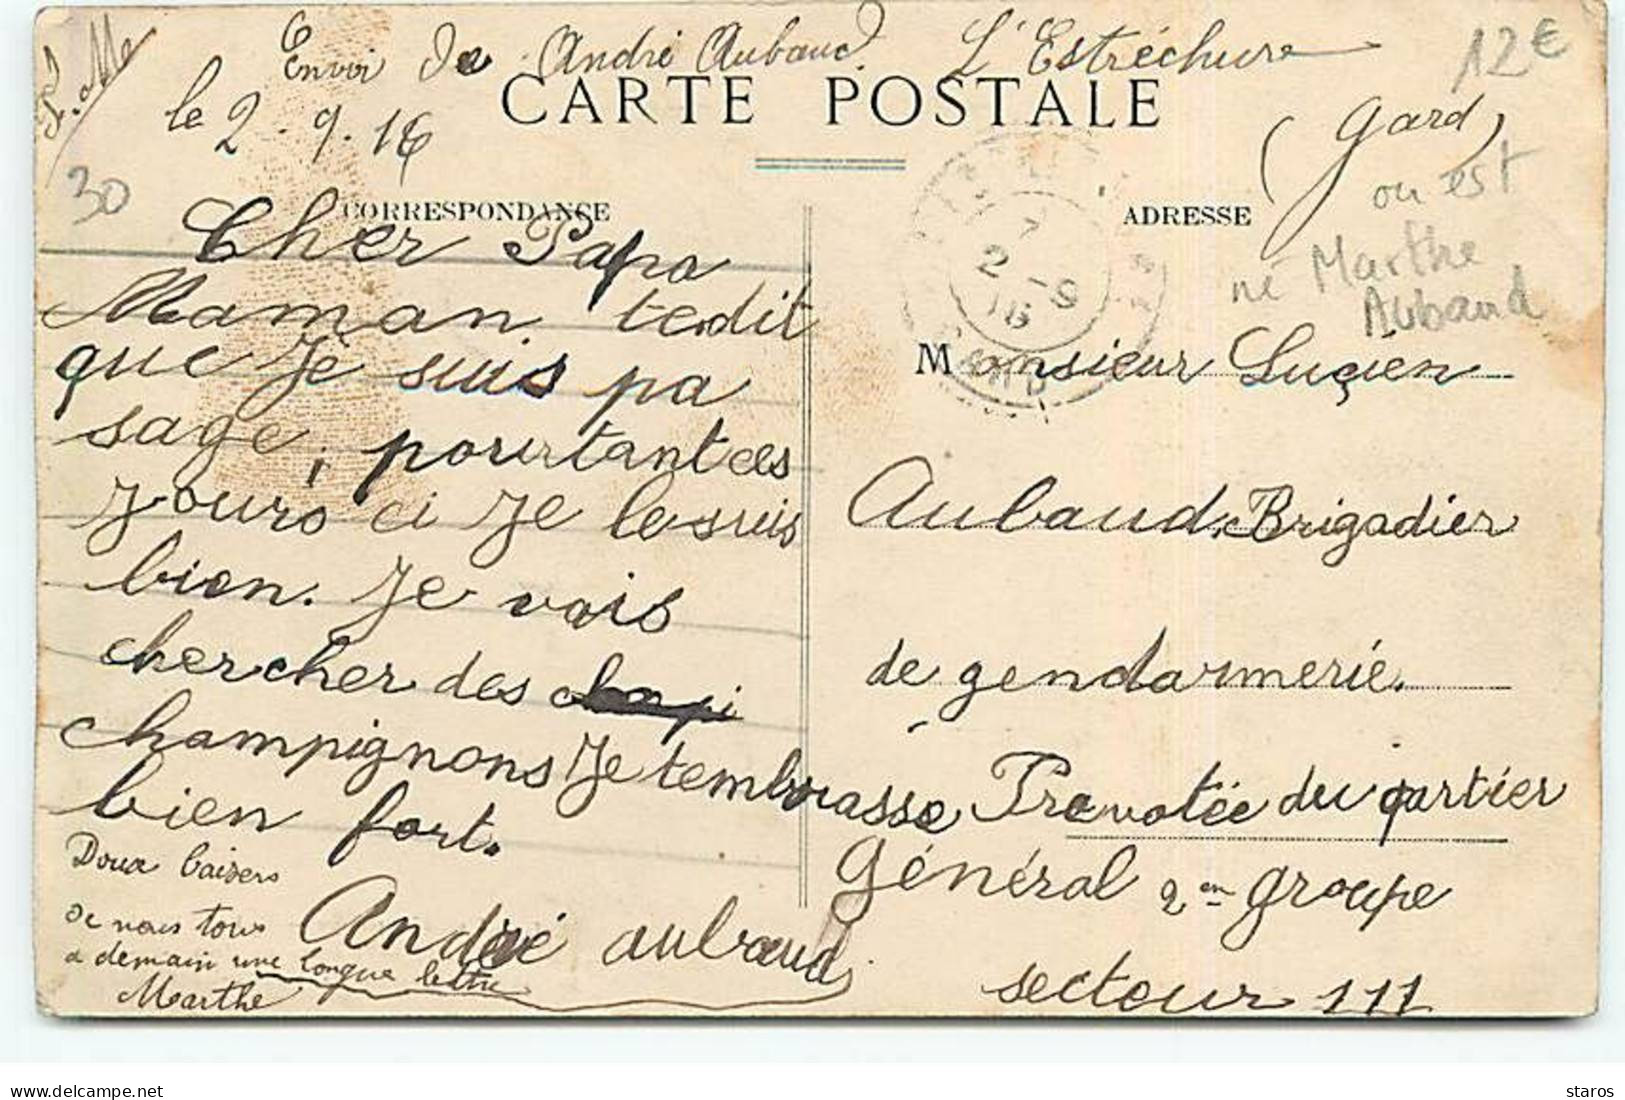 Envoi De André Aubaud. L'Estréchure
12€
F.M
CARTE POSTALE
le 2.9.16
(Gard)
30
ou est
né Marthe
Aubaud
CORRESPONDANCE
Cher Papa
Maman te dit
que Je suis pa
sage, pourtant ces
Jours ci Je le suis
bien. Je vais
chercher des
champignons Je tembrasse
bien fort.
Doux baisers
de nous tous
a demain une longue lettre
Marthe
André aubaud
ADRESSE
7
2 -9
16
GARD
Monsieur Luçien
Aubaud, Brigadier
de gendarmerie.
Prevotée du qartier
Général 2en groupe
secteur 111
delcampe.net
staros